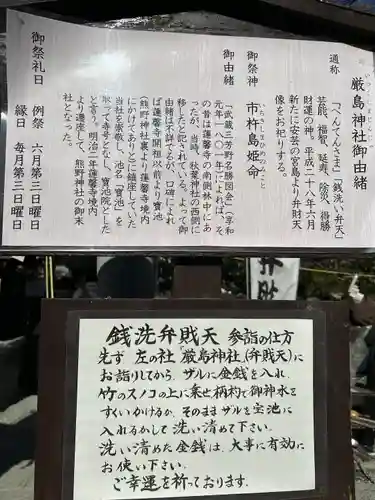 厳島神社御由緒
いつくしまじんじゃ
通称
「べんてんさま」「銭洗い弁天」
芸能、福智、延寿、除災、得勝
財運の神。平成二十八年六月
新たに安芸の宮島より弁財天
像をお祀りする。
御祭神 市杵島姫命
いちきしまひめのみこと
御由緒
「武蔵三芳野名勝図会」(享和
元年―一八〇一年)によれば、そ
の昔は蓮馨寺の南側林中にあ
ったが、当時、秋葉神社の西側に
移したと記されている。よって御
由緒は不詳であるが、口碑によれ
ば蓮馨寺開祖以前より寳池
(熊野神社裏より蓮馨寺境内
にかけてあり)に鎮座していた
当社を崇敬し、池名「寳池」を
取って寺号となし、寳池院とした
と言う。明治二年蓮馨寺境内
より遷座して、熊野神社の御末
社となった。
御祭礼日 例祭 六月第三日曜日
縁日 毎月第三日曜日
弁財
銭洗弁財天 参詣の仕方
先ず 左の社 厳島神社(弁財天)に
お詣りしてから、ザルに金銭を入れ、
竹のスノコの上に乗せ柄杓で御神水を
すくいかけるか、そのままザルを宝池に
入れるかして洗い清めて下さい。
洗い清めた金銭は、大事に有効に
お使い下さい。
ご幸運を祈っております。